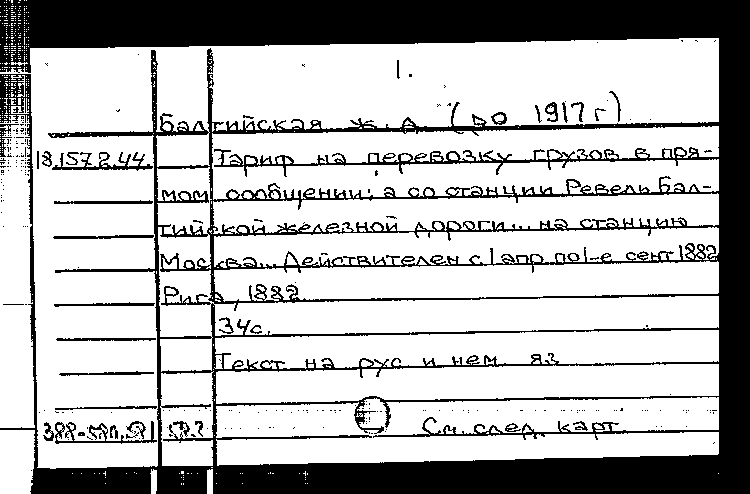 1.
Балтийская ж. д. (до 1917 г)
18.157.2.44. Тариф на перевозку грузов в пря-
мом сообщении: а со станции Ревель Бал-
тийской железной дороги... на станцию
Москва... Действителен с 1 апр по 1-е сент 1882
Рига, 1882
34с.
Текст на рус и нем яз
См. след. карт.